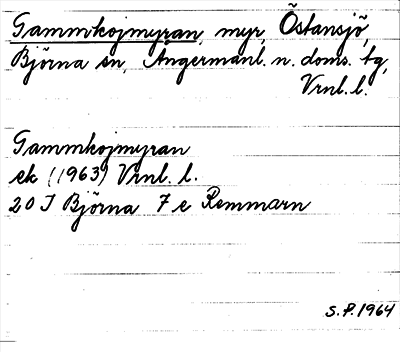 Gammkojmyran, myr, Östansjö,
Björna sn, Ångermanl. n. doms. tg,
Vrnl. l.
Gammkojmyran
ek (1963) Vrnl. l.
20 I Björna 7 e Remmarn
S.P. 1964